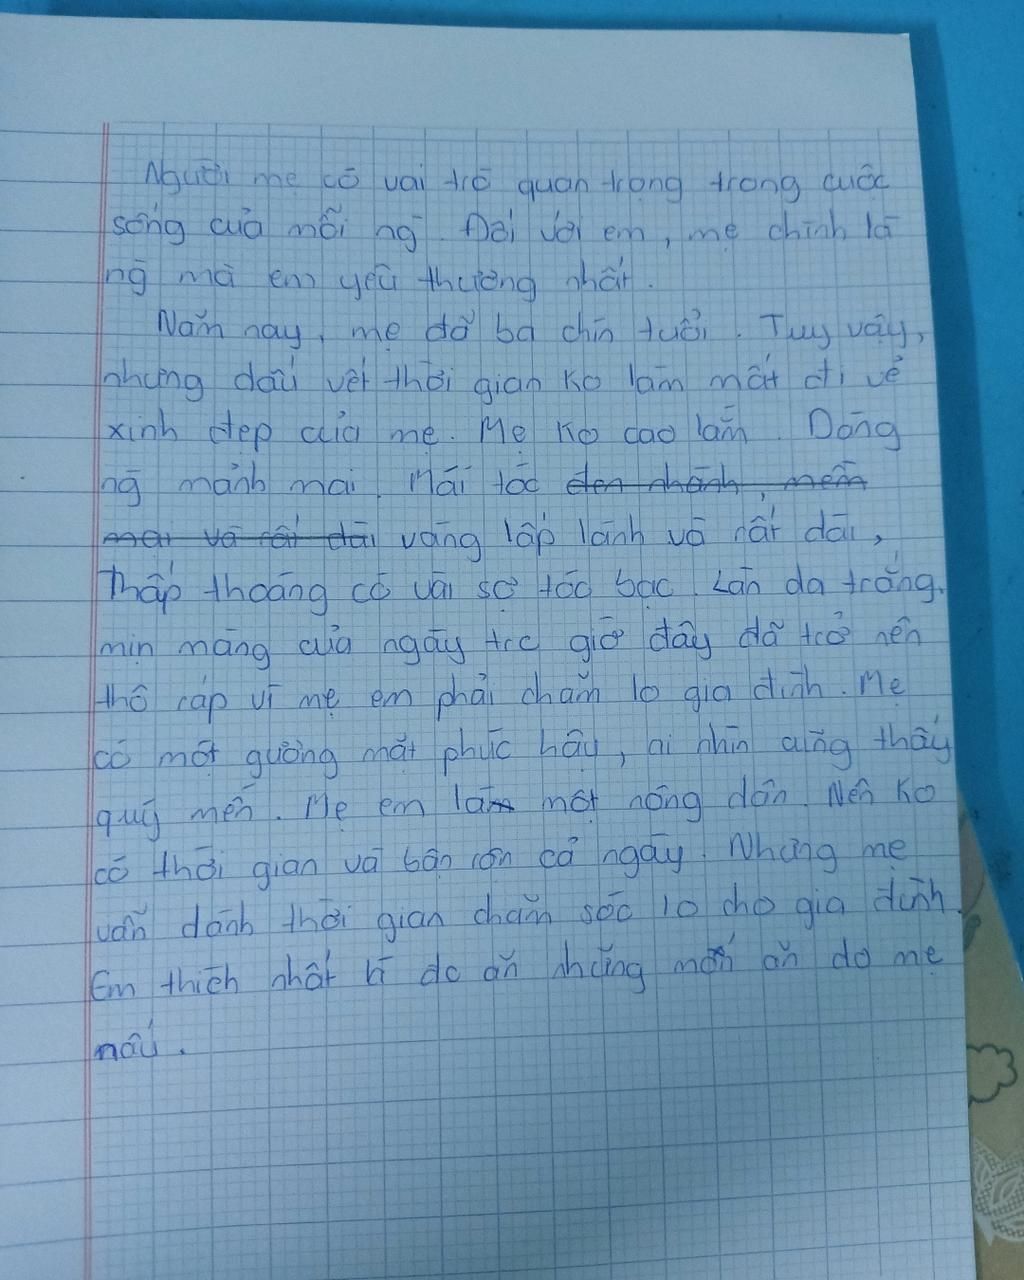 Người mẹ có vai trò quan trọng trong cuộc
sống của mỗi ng̃. Đối với em, mẹ chính là
ng̃ mà em yêu thương nhất.
Năm nay, mẹ đã ba chín tuổi. Tuy vậy,
nhưng dấu vết thời gian ko làm mất đi vẻ
xinh đẹp của mẹ. Mẹ ko cao lắm. Dáng
ng̃ mảnh mai. Mái tóc đen nhánh, mềm
mại và rất dài vàng lấp lánh và rất dài,
Thấp thoáng có vài sợ tóc bạc. Làn da trắng.
mịn màng của ngày trc giờ đây đã trở nên
thô ráp vì mẹ em phải chăm lo gia đình. Mẹ
có một gương mặt phúc hậu, ai nhìn cũng thấy
quý mến. Mẹ em là một nông dân. Nên ko
có thời gian và bận rộn cả ngày. Nhưng mẹ
vẫn dành thời gian chăm sóc lo cho gia đình.
Em thích nhất là dc ăn những món ăn do mẹ
nấu.